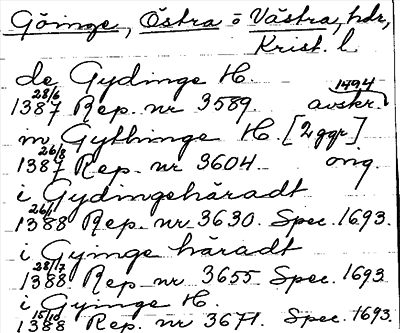 Göinge, Östra o Västra, hdr,
Krist. l
de Gydinge H.
28/6 1494
1387 Rep. nr 3589. avskr.
in Gythinge H. [2 ggr]
26/8
1387 Rep. nr 3604 orig.
i Gydingehäradt
26/1
1388 Rep. nr 3630. Spec. 1693.
i Gyinge häradt
28/17
1388 Rep nr 3655 Spec. 1693
i Gyinge H.
15/10
1388 Rep. nr 3671. Spec. 1693.